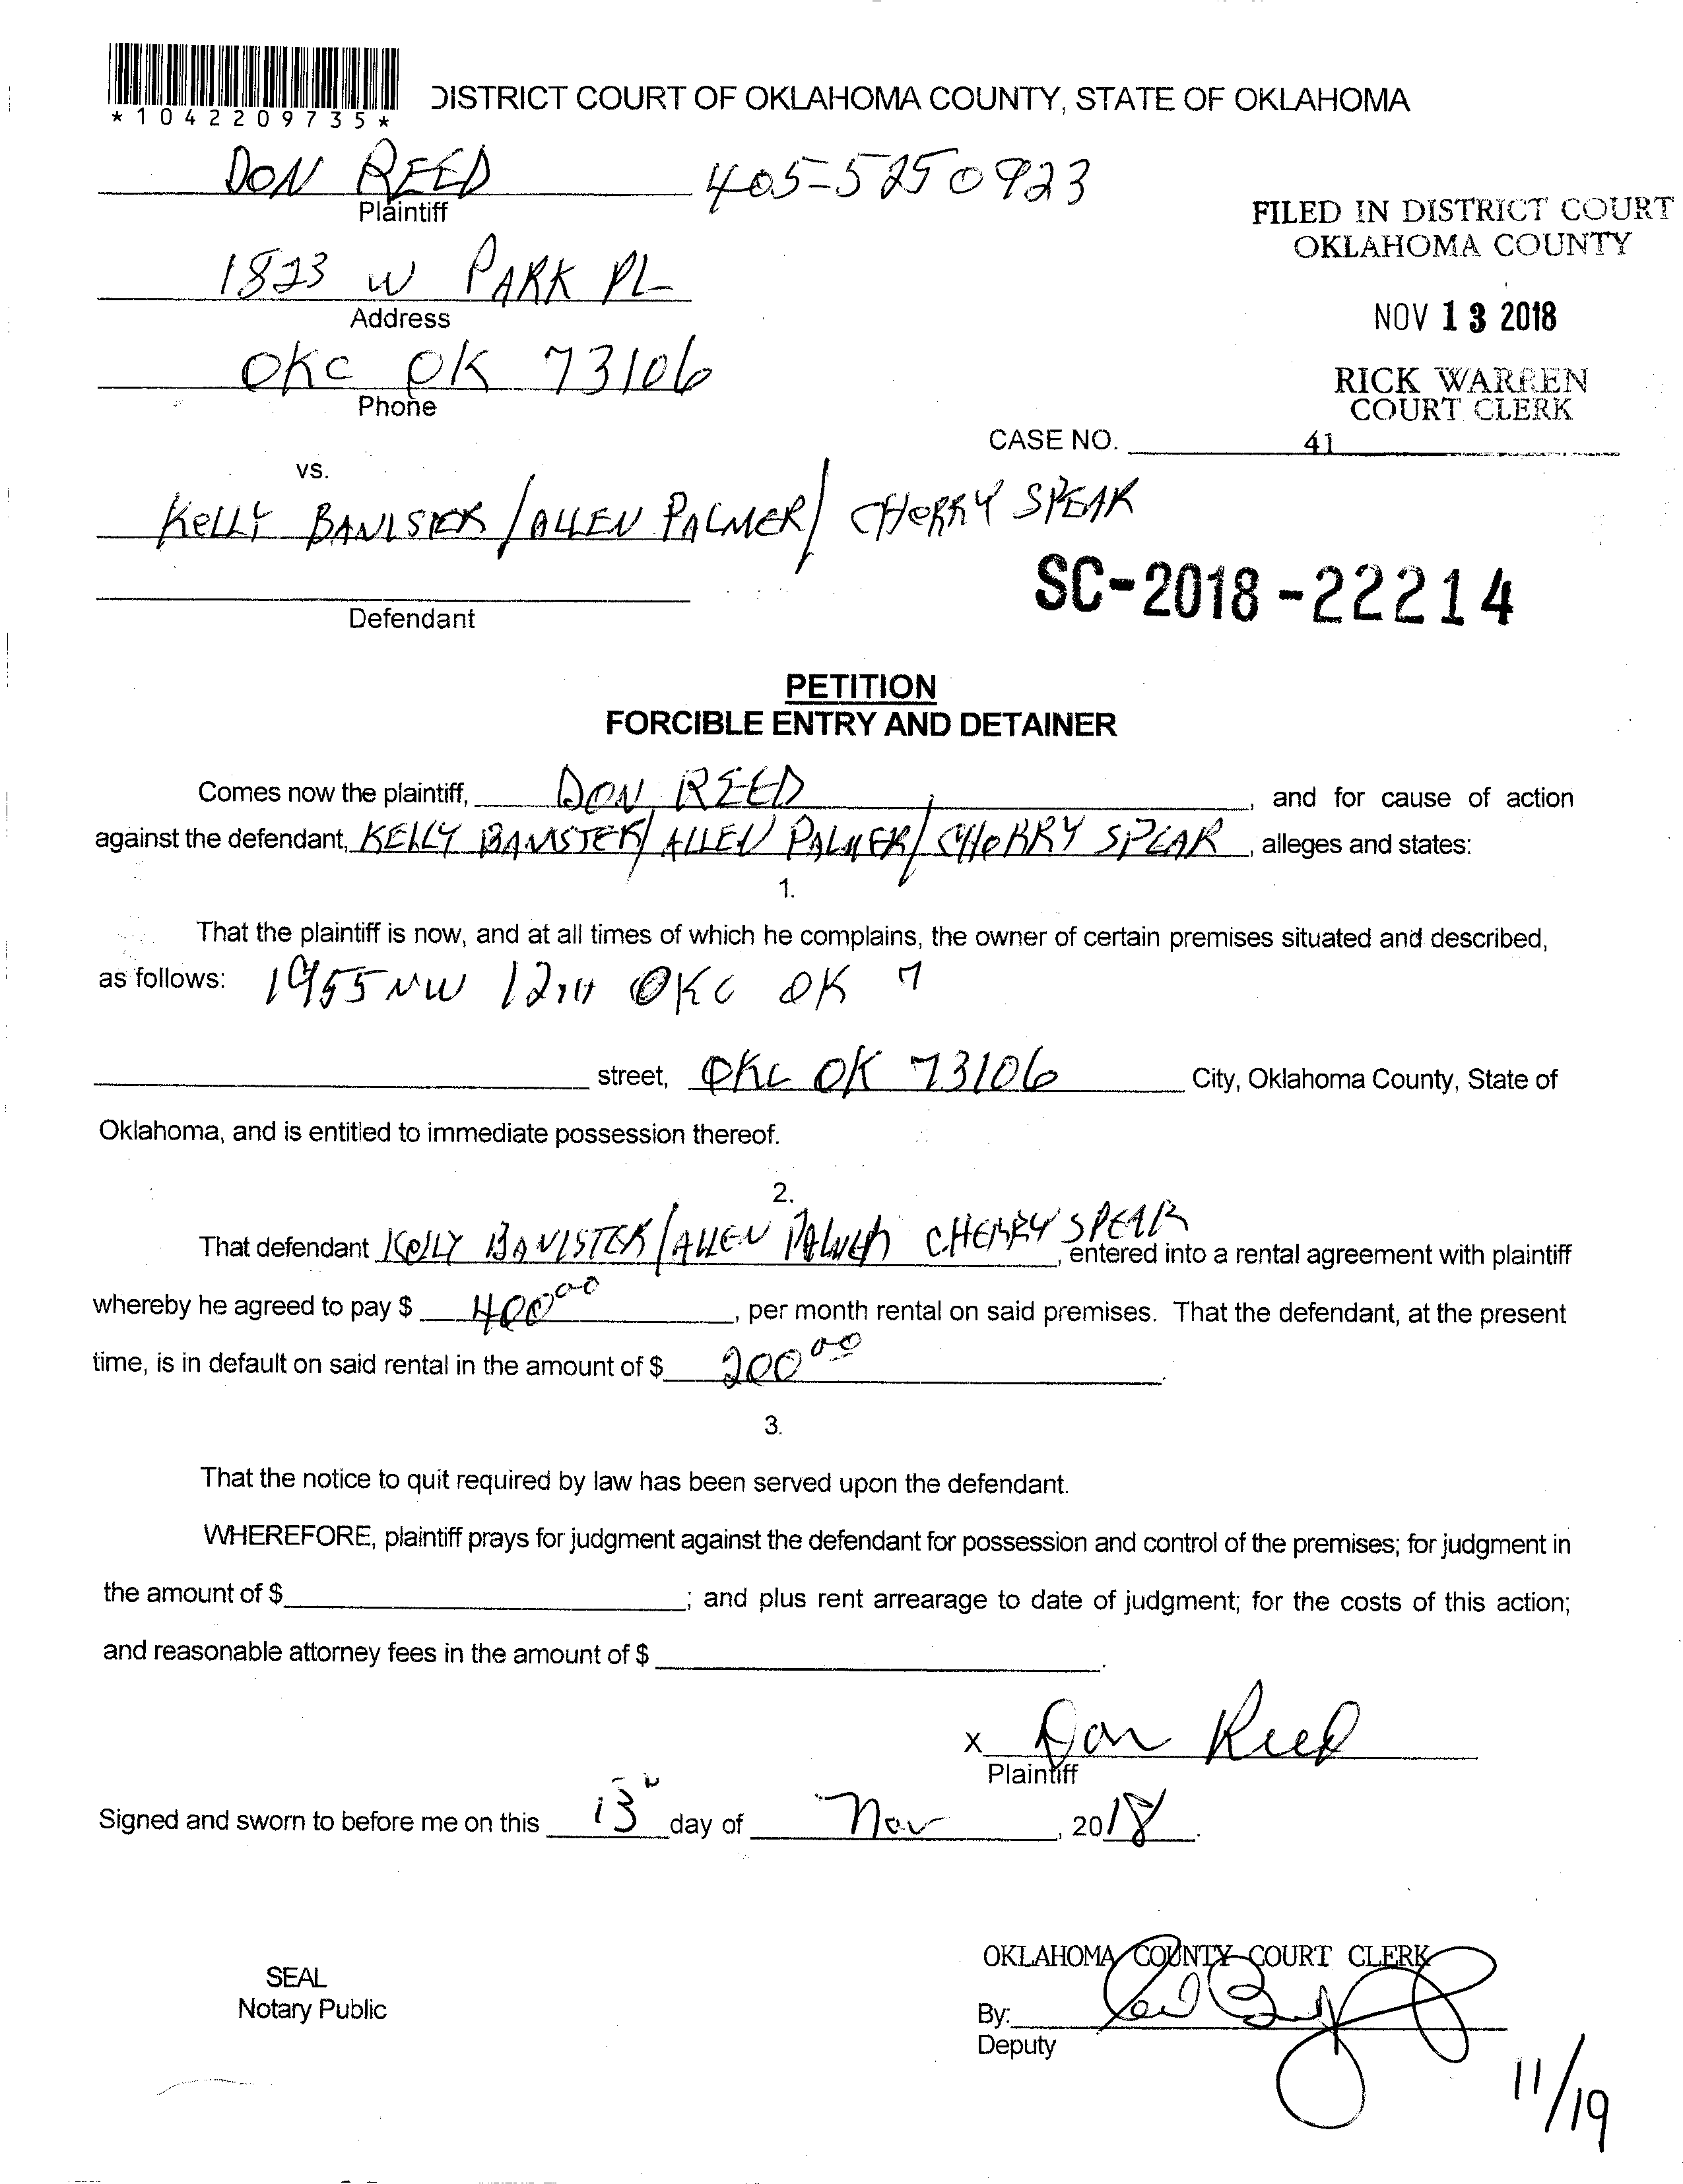 *1042209735*
DISTRICT COURT OF OKLAHOMA COUNTY, STATE OF OKLAHOMA
DON REED 405-5250923
Plaintiff
FILED IN DISTRICT COURT
OKLAHOMA COUNTY
1823 W PARK PL
Address
NOV 13 2018
OKC OK 73106
Phone
RICK WARREN
COURT CLERK
CASE NO. 41
vs.
KELLY BANISTER / ALLEN PALMER / CHERRY SPEAR
SC-2018-22214
Defendant
PETITION
FORCIBLE ENTRY AND DETAINER
Comes now the plaintiff, DON REED, and for cause of action
against the defendant, KELLY BANISTER / ALLEN PALMER / CHERRY SPEAR, alleges and states:
1.
That the plaintiff is now, and at all times of which he complains, the owner of certain premises situated and described,
as follows: 1955 NW 12TH OKC OK 7
street, OKC OK 73106 City, Oklahoma County, State of
Oklahoma, and is entitled to immediate possession thereof.
2.
That defendant KELLY BANISTER / ALLEN PALMER CHERRY SPEAR, entered into a rental agreement with plaintiff
whereby he agreed to pay $ 400 00, per month rental on said premises. That the defendant, at the present
time, is in default on said rental in the amount of $ 200 00.
3.
That the notice to quit required by law has been served upon the defendant.
WHEREFORE, plaintiff prays for judgment against the defendant for possession and control of the premises; for judgment in
the amount of $ ; and plus rent arrearage to date of judgment; for the costs of this action;
and reasonable attorney fees in the amount of $ .
x Don Reed
Plaintiff
Signed and sworn to before me on this 13 day of Nov, 2018.
OKLAHOMA COUNTY COURT CLERK
SEAL
Notary Public
By:
Deputy
11/19